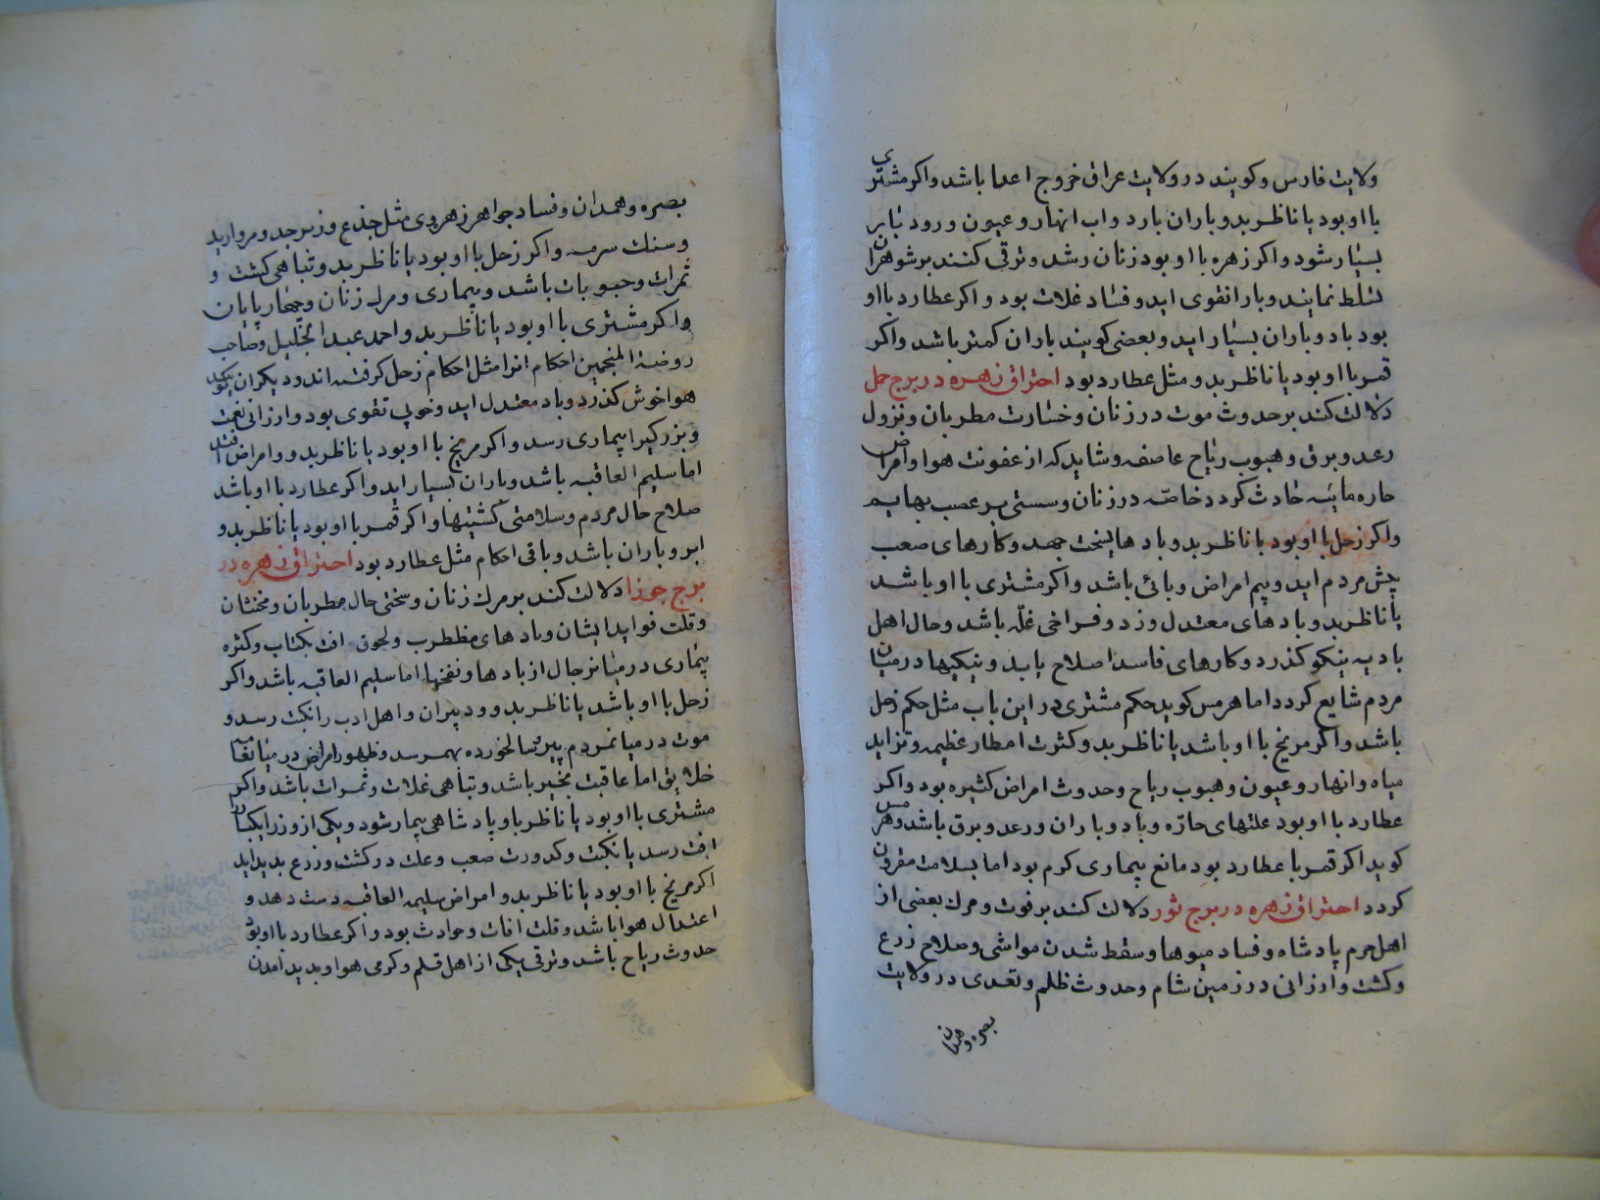 ولایت فارس و کویند در ولایت عراق خروج اعدا باشد و اکر مشتری
با او بود یا ناظر بدو باران بارد و اب انهار و عیون و رود نابر
بسیار شود و اکر زهره با او بود زنان رشد و ترقی کنند بر شوهران
تسلط نمایند و بارانقوی اید و فساد غلات بود و اکر عطارد با او
بود باد و باران بسیار اید و بعضی کویند باران کمتر باشد و اکر
قمر با او بود یا ناظر بدو مثل عطارد بود احتراق زهره در برج حمل
دلالت کند بر حدوث موت در زنان و خسارت مطربان و نزول
رعد و برق و هبوب ریاح عاصفه و شاید که از عفونت هوا و امراض
حاره مائیه حادث کردد خاصه در زنان و سستی بر عصب بهایم
و اکر زحل با او بود یا ناظر بدو بادهای سخت جهد و کارهای صعب
پیش مردم اید و بیم امراض وبائی باشد و اکر مشتری با او باشد
یا ناظر بدو بادهای معتدل وزد و فراخی غله باشد و حال اهل
بادیه نیکو کذرد و کارهای فاسد اصلاح یابد و نیکیها در میان
مردم شایع کردد اما هرمس کوید حکم مشتری در این باب مثل حکم زحل
باشد و اکر مریخ با او باشد یا ناظر بدو کثرت امطار عظیمه و تزاید
میاه و انهار و عیون و هبوب ریاح و حدوث امراض کثیره بود و اکر
عطارد با او بود علتهای حاره و باد و باران و رعد و برق باشد و هرمس
کوید اکر قمر با عطارد بود مانع بیماری کرم بود اما بسلامت مقرون
کردد احتراق زهره در برج ثور دلالت کند بر فوت و مرك بعضی از
اهل حرم پادشاه و فساد میوها و سقط شدن مواشی و صلاح زرع
و کشت و ارزانی در زمین شام و حدوث ظلم و تعدی در ولایت
بصره و همدان
بصره و همدان و فساد جواهر زهروی مثل جذع و زبرجد و مروارید
و سنك سرمه و اکر زحل با او بود یا ناظر بدو تباهی کشت و
ثمرات و حبوبات باشد و بیماری و مرك زنان و چهارپایان
و اکر مشتری با او بود یا ناظر بدو احمد عبد الجلیل و صاحب
روضة المنجمین احکام انرا مثل احکام زحل کرفته اند و دیکران کویند
هوا خوش کذرد و باد معتدل اید و خوبی تقوی بود و ارزانی نعمت
و بزرکیرا بیماری رسد و اکر مریخ با او بود یا ناظر بدو و امراض افتد
اما سلیم العاقبه باشد و باران بسیار اید و اکر عطارد با او باشد
صلاح حال مردم و سلامتی کشتیها و اکر قمر با او بود یا ناظر بدو
ابر و باران باشد و باقی احکام مثل عطارد بود احتراق زهره در
برج جوزا دلالت کند بر مرك زنان و سختی حال مطربان و مخنثان
و قلت فواید ایشان و بادهای مظطرب و لحوق افت بکتاب و کثره
بیماری در میانرجال از بادها و نفخها اما سلیم العاقبه باشد و اکر
زحل با او باشد یا ناظر بدو و دبیران و اهل ادب را نکبت رسد و
موت در میانمردم پیر سالخورده بهمرسد و ظهور امراض در میانعامه
خلایق اما عاقبت بخیر باشد و تباهی غلات و ثمرات باشد و اکر
مشتری با او بود یا ناظر باو پادشاهی بیمار شود و یکی از وزرا یکسان
افت رسد یا نکبت و کدورت صعب و علت در کشت و زرع بدید اید
اکر مریخ با او بود یا ناظر بدو امراض سلیمه العاقبه دست دهد و
اعتدال هوا باشد و قلت افات و حوادث بود و اکر عطارد با او بود
حدوث ریاح باشد و ترقی یکی از اهل قلم و کرمی هوا و بدید امدن